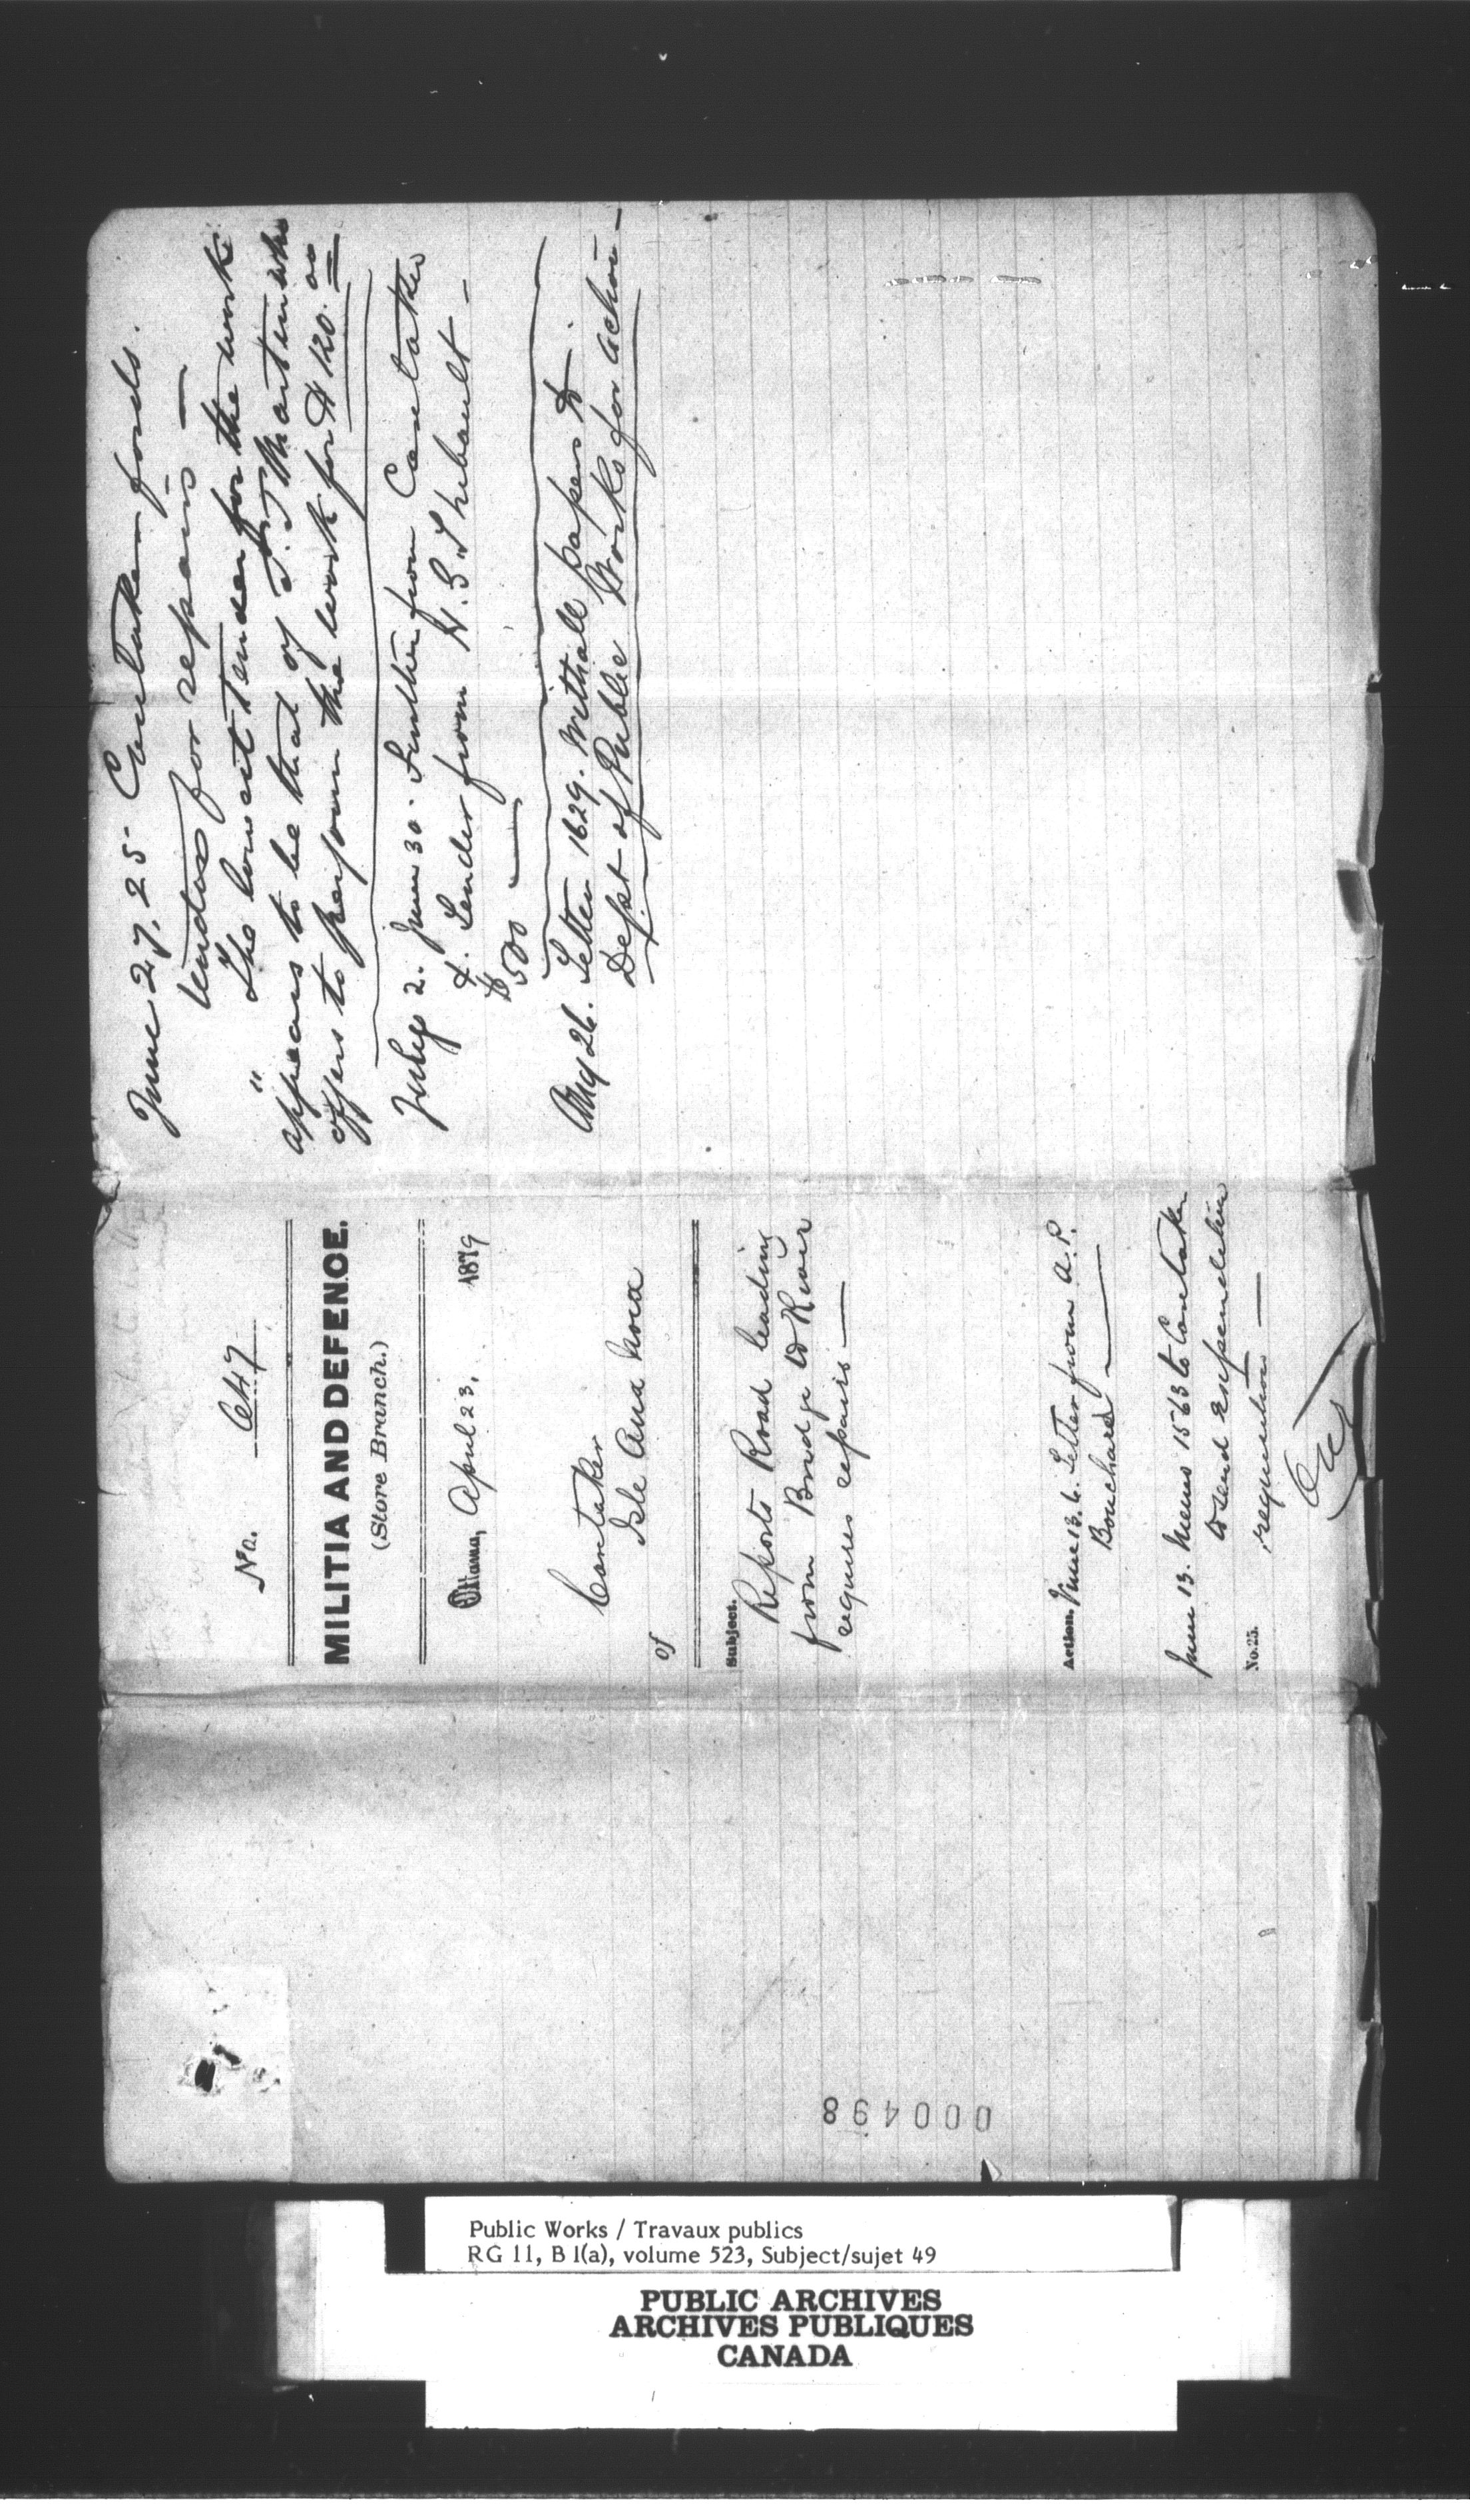 No. C447
MILITIA AND DEFENCE.
(Store Branch.)
Ottawa, April 23, 1879
Caretaker
of Isle Aux Noix
Subject.
Reports Road leading
from Bridge to River
requires repairs —
Action. June 13. 6. Letter from A. P.
Bouchard —
June 13. Memo 1563 to Caretaker
to send expenditure
No. 25. requisition —
June 27. 25 Caretaker fords.
tenders for repairs —
"The lowest tender for the work
appears to be that of J. Martin who
offers to perform the work for $120.00
July 2. June 30. Further from Caretaker
&. Tender from H. G. Thebault —
$500 —
Aug 26. Letter 1629. With all papers to
Dept of Public Works for action —
000498
Public Works / Travaux publics
RG 11, B 1(a), volume 523, Subject/sujet 49
PUBLIC ARCHIVES
ARCHIVES PUBLIQUES
CANADA